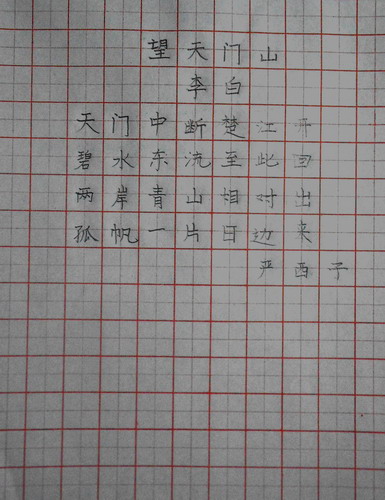 望天门山
李白
天门中断楚江开
碧水东流至此回
两岸青山相对出
孤帆一片日边来
严西子